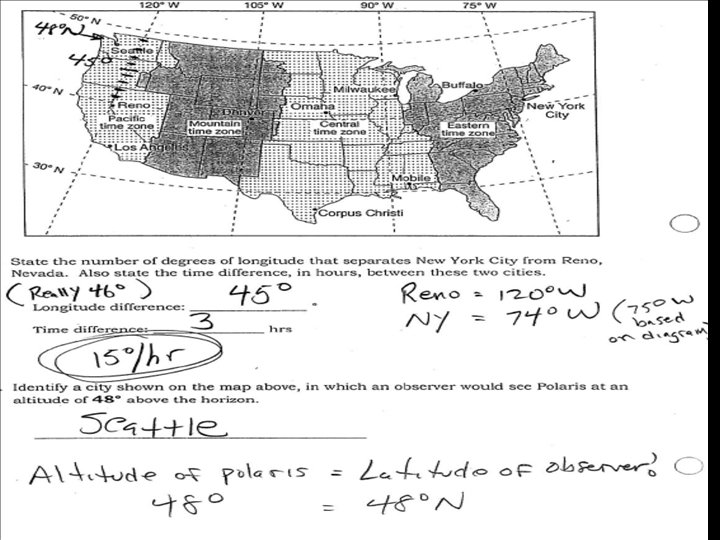 120° W 105° W 90° W 75° W
50° N
48°N
Seattle
45°
40° N
Milwaukee
Buffalo
Reno
Omaha
New York
City
Pacific
time zone
Mountain
time zone
Central
time zone
Eastern
time zone
Los Angeles
30° N
Mobile
Corpus Christi
State the number of degrees of longitude that separates New York City from Reno,
Nevada. Also state the time difference, in hours, between these two cities.
(Really 46°) 45° Reno = 120°W
Longitude difference: °
NY = 74°W (75°W
based
on diagram)
Time difference: 3 hrs
15°/hr
Identify a city shown on the map above, in which an observer would see Polaris at an
altitude of 48° above the horizon.
Seattle
Altitude of polaris = Latitude of observer!
48° = 48°N